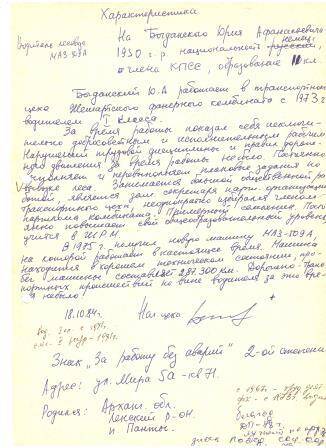 Характеристика
На Богданского Юрия Афанасьевича
немец
Водителю лесовоза
МАЗ 509А
1950 г.р национальность русский,
члена КПСС, образование 10 кл
Богданский Ю.А работает в транспортном
цехе Жешартского фанерного комбината с 1973 г
водителем I класса.
За время работы показал себя исключи-
тельно добросовестным и исполнительным работни
Нарушений трудовой дисциплины и правил дорож-
ного движения за время работы не было. Постоянно
выполняет и перевыполняет плановые задания по
вывозке леса. Занимается большой общественной ра
ботой является зам. секретаря парт. организации
транспортного цеха, неоднократно избирался членом
парткома комбината. Примерный семьянин. Пост
оянно повышает свой общеобразовательный уровень
учится в ШРМ.
В 1975 г. получил новую машину МАЗ-509А,
на которой работает в настоящее время. Машина
находится в хорошем техническом состоянии, про-
бег машины составляет 287 300 км. Дорожно-Транс-
портных происшествий по вине водителя за это вре-
я не было!
18.10.84 г. Нач цеха
Знак "За работу без аварий" 2-ой степени
Адрес: ул. Мира 5а - кв 71.
Родился: Арханг. обл.
Ленский р-он.
п Панты.